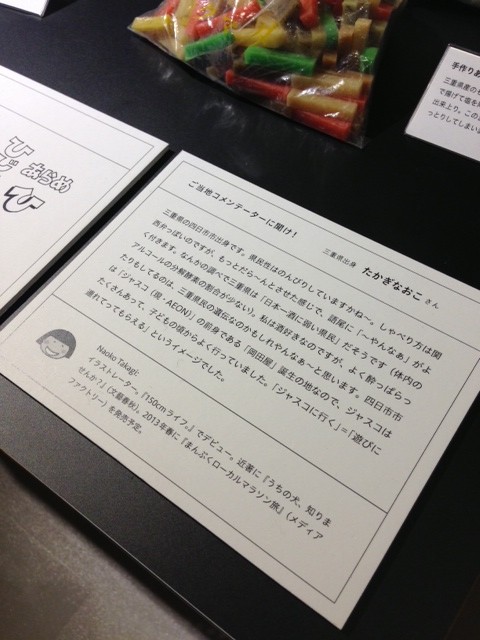 ひ
じ
あらめ
ひ
ご当地コメンテーターに聞け！
三重県出身 たかぎなおこ さん
三重県の四日市市出身です。県民性はのんびりしていますかねー。しゃべり方は関
西弁っぽいのですが、もっとだらーんとさせた感じで、語尾に「〜やんなぁ」がよ
く付きます。なんかの調べで三重県は「日本一酒に弱い県民」だそうです（体内の
アルコールの分解酵素の割合が少ない）。私は酒好きなのですが、よく酔っぱらっ
たりもしてるのは、三重県民の遺伝なのかもしれやんなぁ〜と思います。四日市市
は「ジャスコ（現・AEON）」の前身である「岡田屋」誕生の地なので、ジャスコは
たくさんあって、子どもの頃からよく行っていました。「ジャスコに行く」=「遊びに
連れてってもらえる」というイメージでした。
Naoko Takagi:
イラストレーター。『150cmライフ。』でデビュー。近著に『うちの犬、知りま
せんか?』（文藝春秋）。2013年春に『まんぷくローカルマラソン旅』（メディア
ファクトリー）を発売予定。
手作りあ
三重県産のも
で揚げて塩を
出来上り。この
っとりしてしまい